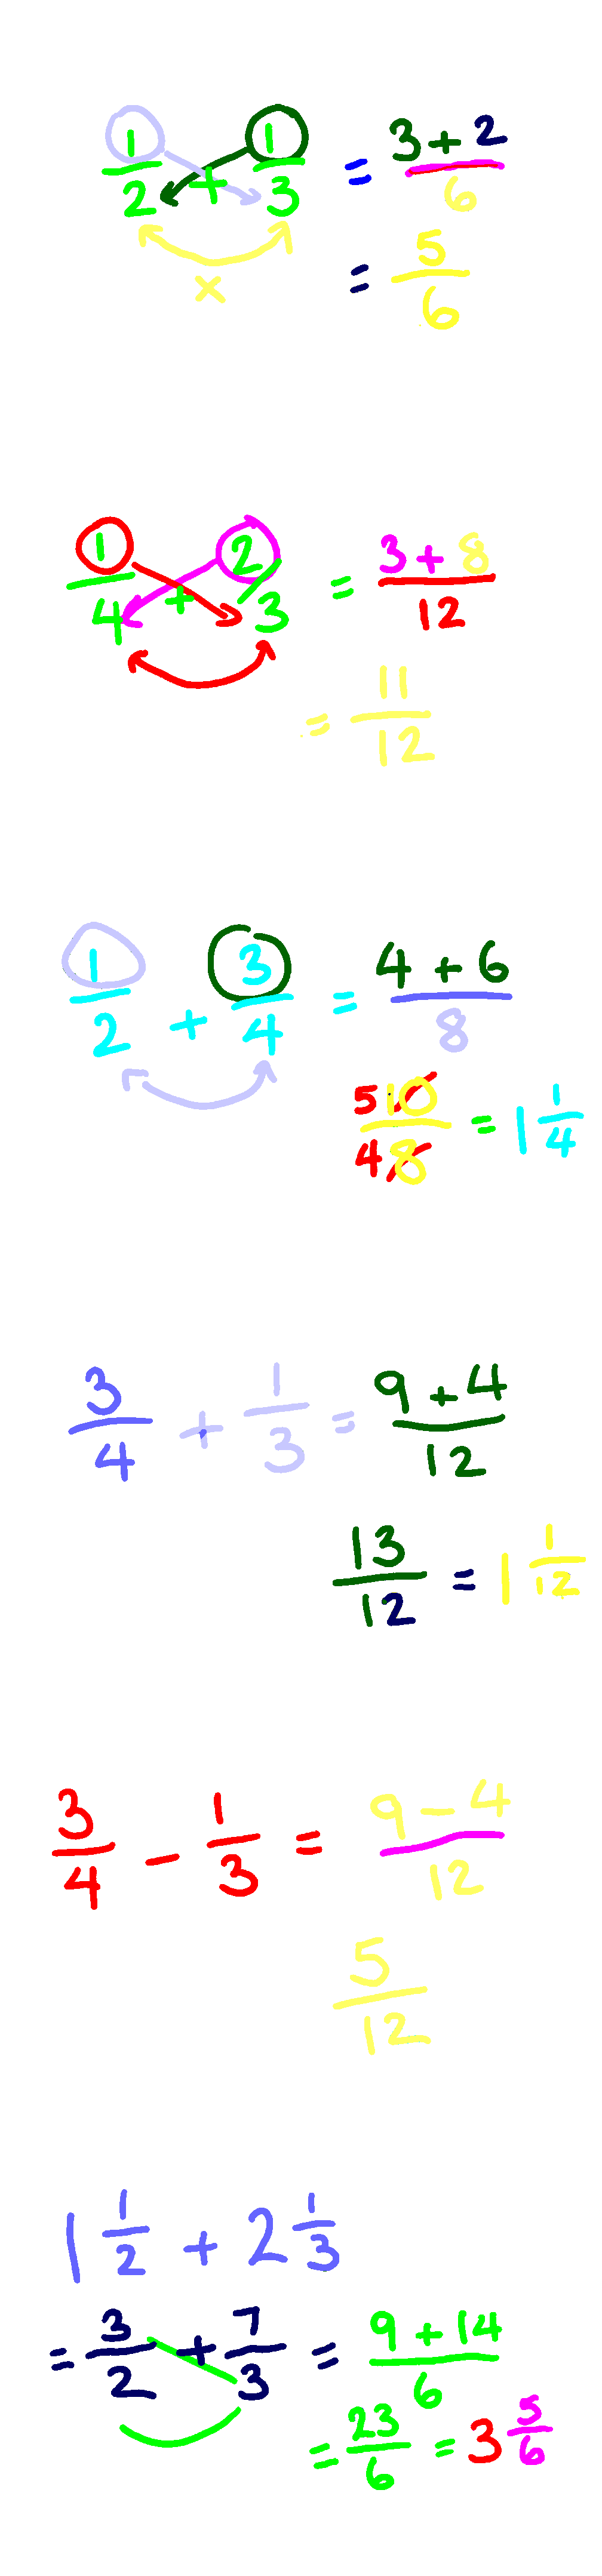 1/2 + 1/3 = (3 + 2)/6
×
= 5/6
1/4 + 2/3 = (3 + 8)/12
= 11/12
1/2 + 3/4 = (4 + 6)/8
5 10/4 8 = 1 1/4
3/4 + 1/3 = (9 + 4)/12
13/12 = 1 1/12
3/4 - 1/3 = (9 - 4)/12
5/12
1 1/2 + 2 1/3
= 3/2 + 7/3 = (9 + 14)/6
= 23/6 = 3 5/6